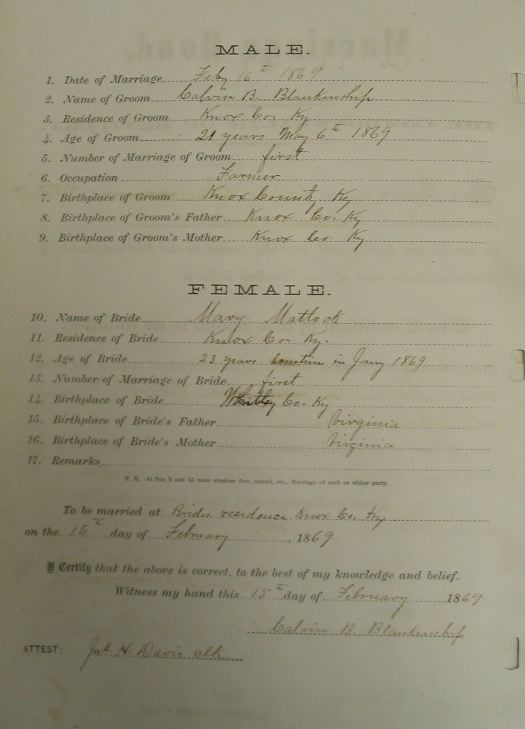 MALE.
1. Date of Marriage Feby 16th 1869
2. Name of Groom Calvin B. Blankinship
3. Residence of Groom Knox Co. Ky
4. Age of Groom 21 years May 6th 1869
5. Number of Marriage of Groom first
6. Occupation Farmer
7. Birthplace of Groom Knox County Ky
8. Birthplace of Groom's Father Knox Co. Ky
9. Birthplace of Groom's Mother Knox Co. Ky
FEMALE.
10. Name of Bride Mary Matlock
11. Residence of Bride Knox Co Ky.
12. Age of Bride 23 years in Jany 1869
13. Number of Marriage of Bride first
14. Birthplace of Bride Whitley Co. Ky
15. Birthplace of Bride's Father Virginia
16. Birthplace of Bride's Mother Virginia
17. Remarks
N. B. At Nos. 5 and 13 state whether first, second, etc., Marriage of each or either party.
To be married at Brides residence Knox Co. Ky
on the 16th day of February, 1869
I Certify that the above is correct, to the best of my knowledge and belief.
Witness my hand this 15th day of February 1869
Calvin B. Blankinship
ATTEST: Jno. H. Davis clk